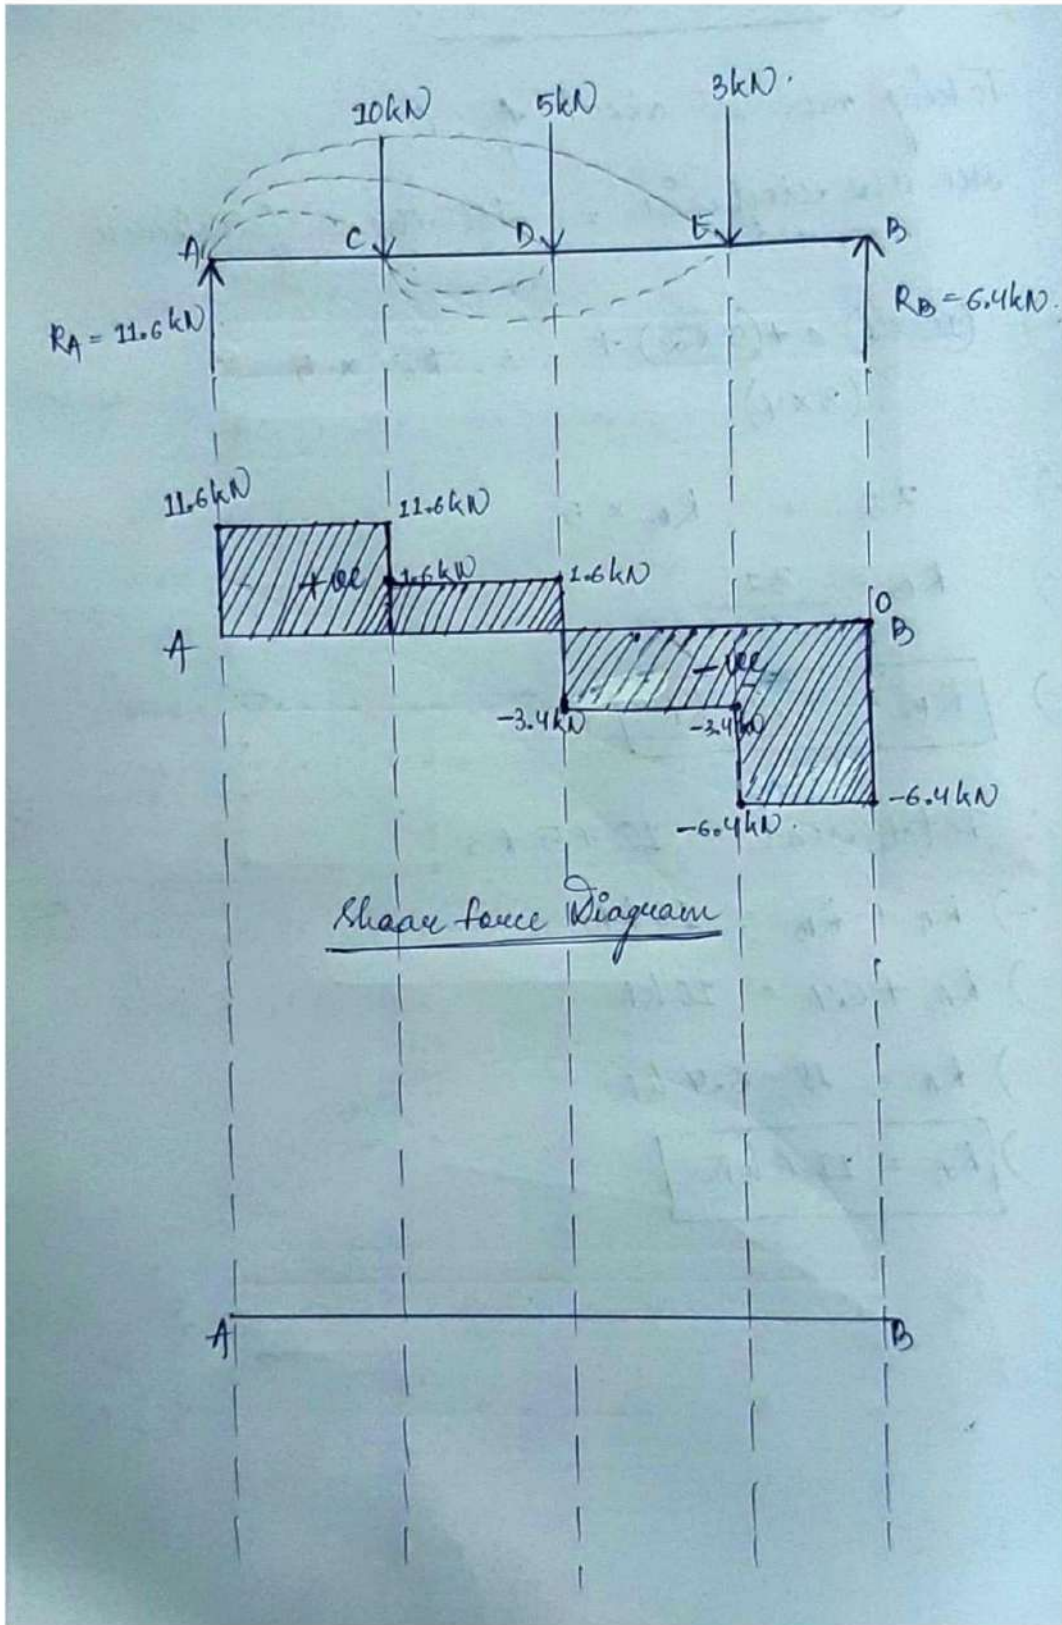 10kN 5kN 3kN.
A C D E B
RA = 11.6kN
RB = 6.4kN.
11.6kN 11.6kN
+ve 1.6kN 1.6kN
O
A B
-ve
-3.4kN -3.4kN
-6.4kN. -6.4kN
Shaar force Diagram
A B